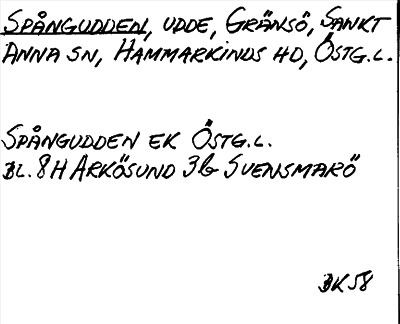 SPÅNGUDDEN, UDDE, GRÄNSÖ, SANKT
ANNA SN, HAMMARKINDS HD, ÖSTG.L.
SPÅNGUDDEN EK ÖSTG.L.
BL. 8H ARKÖSUND 3b SVENSMARÖ
BK 58